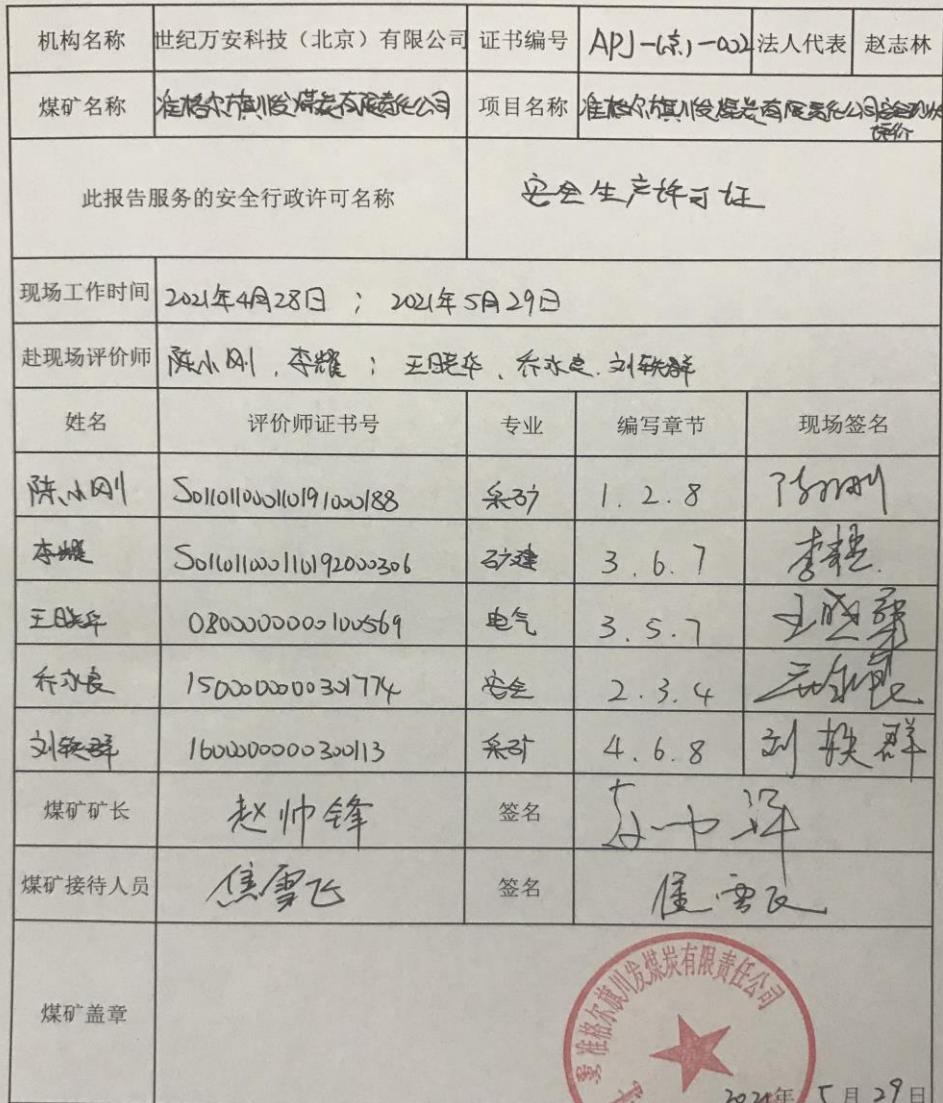 机构名称 世纪万安科技（北京）有限公司 证书编号 APJ-(京)-002 法人代表 赵志林
煤矿名称 准格尔旗川发煤炭有限责任公司 项目名称 准格尔旗川发煤炭有限责任公司安全现状
评价
此报告服务的安全行政许可名称 安全生产许可证
现场工作时间 2021年4月28日 ； 2021年5月29日
赴现场评价师 陈小刚 、李耀 ； 王晓华 、乔永良、刘轶群
姓名 评价师证书号 专业 编写章节 现场签名
陈小刚 S011011000110191000188 采矿 1.2.8 陈小刚
李耀 S011011000110192000306 矿建 3.6.7 李耀
王晓华 0800000000100569 电气 3.5.7 王晓华
乔永良 1500000000301774 安全 2.3.4 乔永良
刘轶群 1600000000300113 采矿 4.6.8 刘轶群
煤矿矿长 赵帅锋 签名
煤矿接待人员 焦雪飞 签名 焦雪飞
准格尔旗川发煤炭有限责任公司
煤矿盖章
2021年5月29日